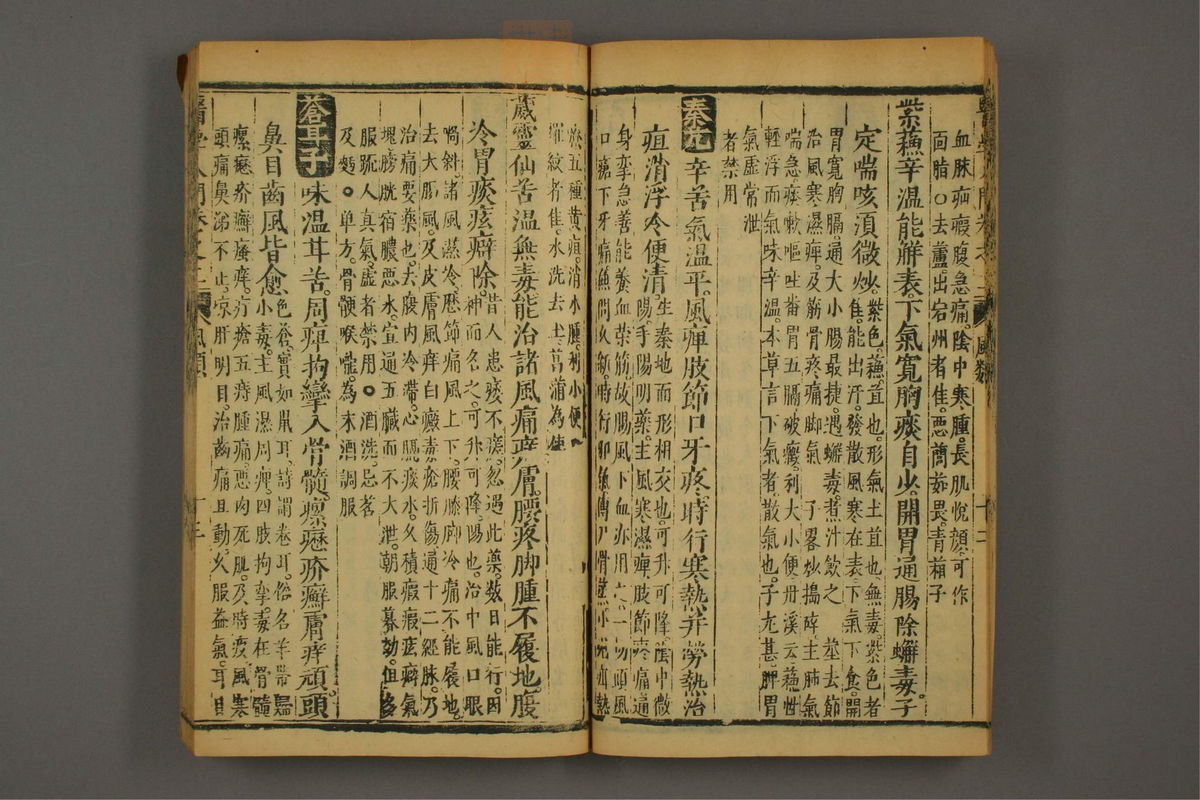 血脉疝瘕腹急痛陰中寒腫長肌悅顏可作
面脂○去蘆出宕州者佳惡䕡茹畏青葙子
紫蘇辛溫能解表下氣寬胸痰自少開胃通腸除蠏毒子
定喘咳須微炒紫色蘇宜也形氣土宜也無毒紫色者
佳能出汗發散風寒在表下氣下食開
胃寬胸膈通大小腸最捷遇蠏毒煮汁飲之 莖去節
治風寒濕痺及筋骨疼痛脚氣 子畧炒搗碎主肺氣
喘急痰嗽嘔吐畨胃五膈破癥利大小便丹溪云蘇
輕浮而氣味辛溫本草言下氣者散氣也子尤甚脾胃
氣虛常泄
者禁用
秦艽辛苦氣溫平風痺肢節口牙疼時行寒熱并勞熱治
疸消浮冷便清生秦地而形相交也可升可降陰中微
陽手陽明藥主風寒濕痺肢節疼痛通
身攣急善能養血荣筋故腸風下血亦用之一切頭風
口瘡下牙痛
療五種黄疸消水腫利小便
羅紋者佳水洗去土菖蒲為使
葳靈仙苦溫無毒能治諸風痛痒膚腰疼脚腫不履地腹
冷胃痰痃癖除昔人患痿不瘥忽遇此藥数日能行因
神而名之可升可降陽也治中風口眼
喎斜諸風濕冷歷節痛風上下腰膝脚冷痛不能履地
去大肠風及皮膚風痒白癜毒瘡折傷通十二經脉乃
治痛要藥也去腹内冷滯心膈痰水久積瘕痃癖氣
塊膀胱宿膿惡水宣通五臟而不大泄朝服暮効但多
服踈人真氣虛者禁用○酒洗忌茗
及麪○单方骨骾喉嚨為末酒調服
蒼耳子味溫甘苦周痺拘攣入骨髓瘰癧疥癬膚痒頑頭
鼻目齒風皆愈色蒼實如鼠耳詩謂卷耳俗名羊帶歸
小毒主風濕周痺四肢拘攣毒在骨髓
瘰癧疥癬瘙痒疔瘡五痔腫痛惡肉死肌及時疫風寒
頭痛鼻涕不止凉肝明目治齒痛且動火服益氣耳目